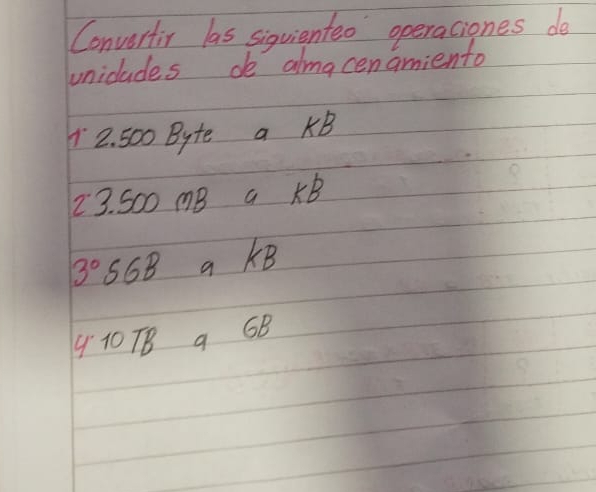 Convertir las siguientes operaciones de
unidades de almacenamiento
1° 2.500 Byte a KB
2° 3.500 MB a KB
3° 5GB a KB
4° 10 TB a GB